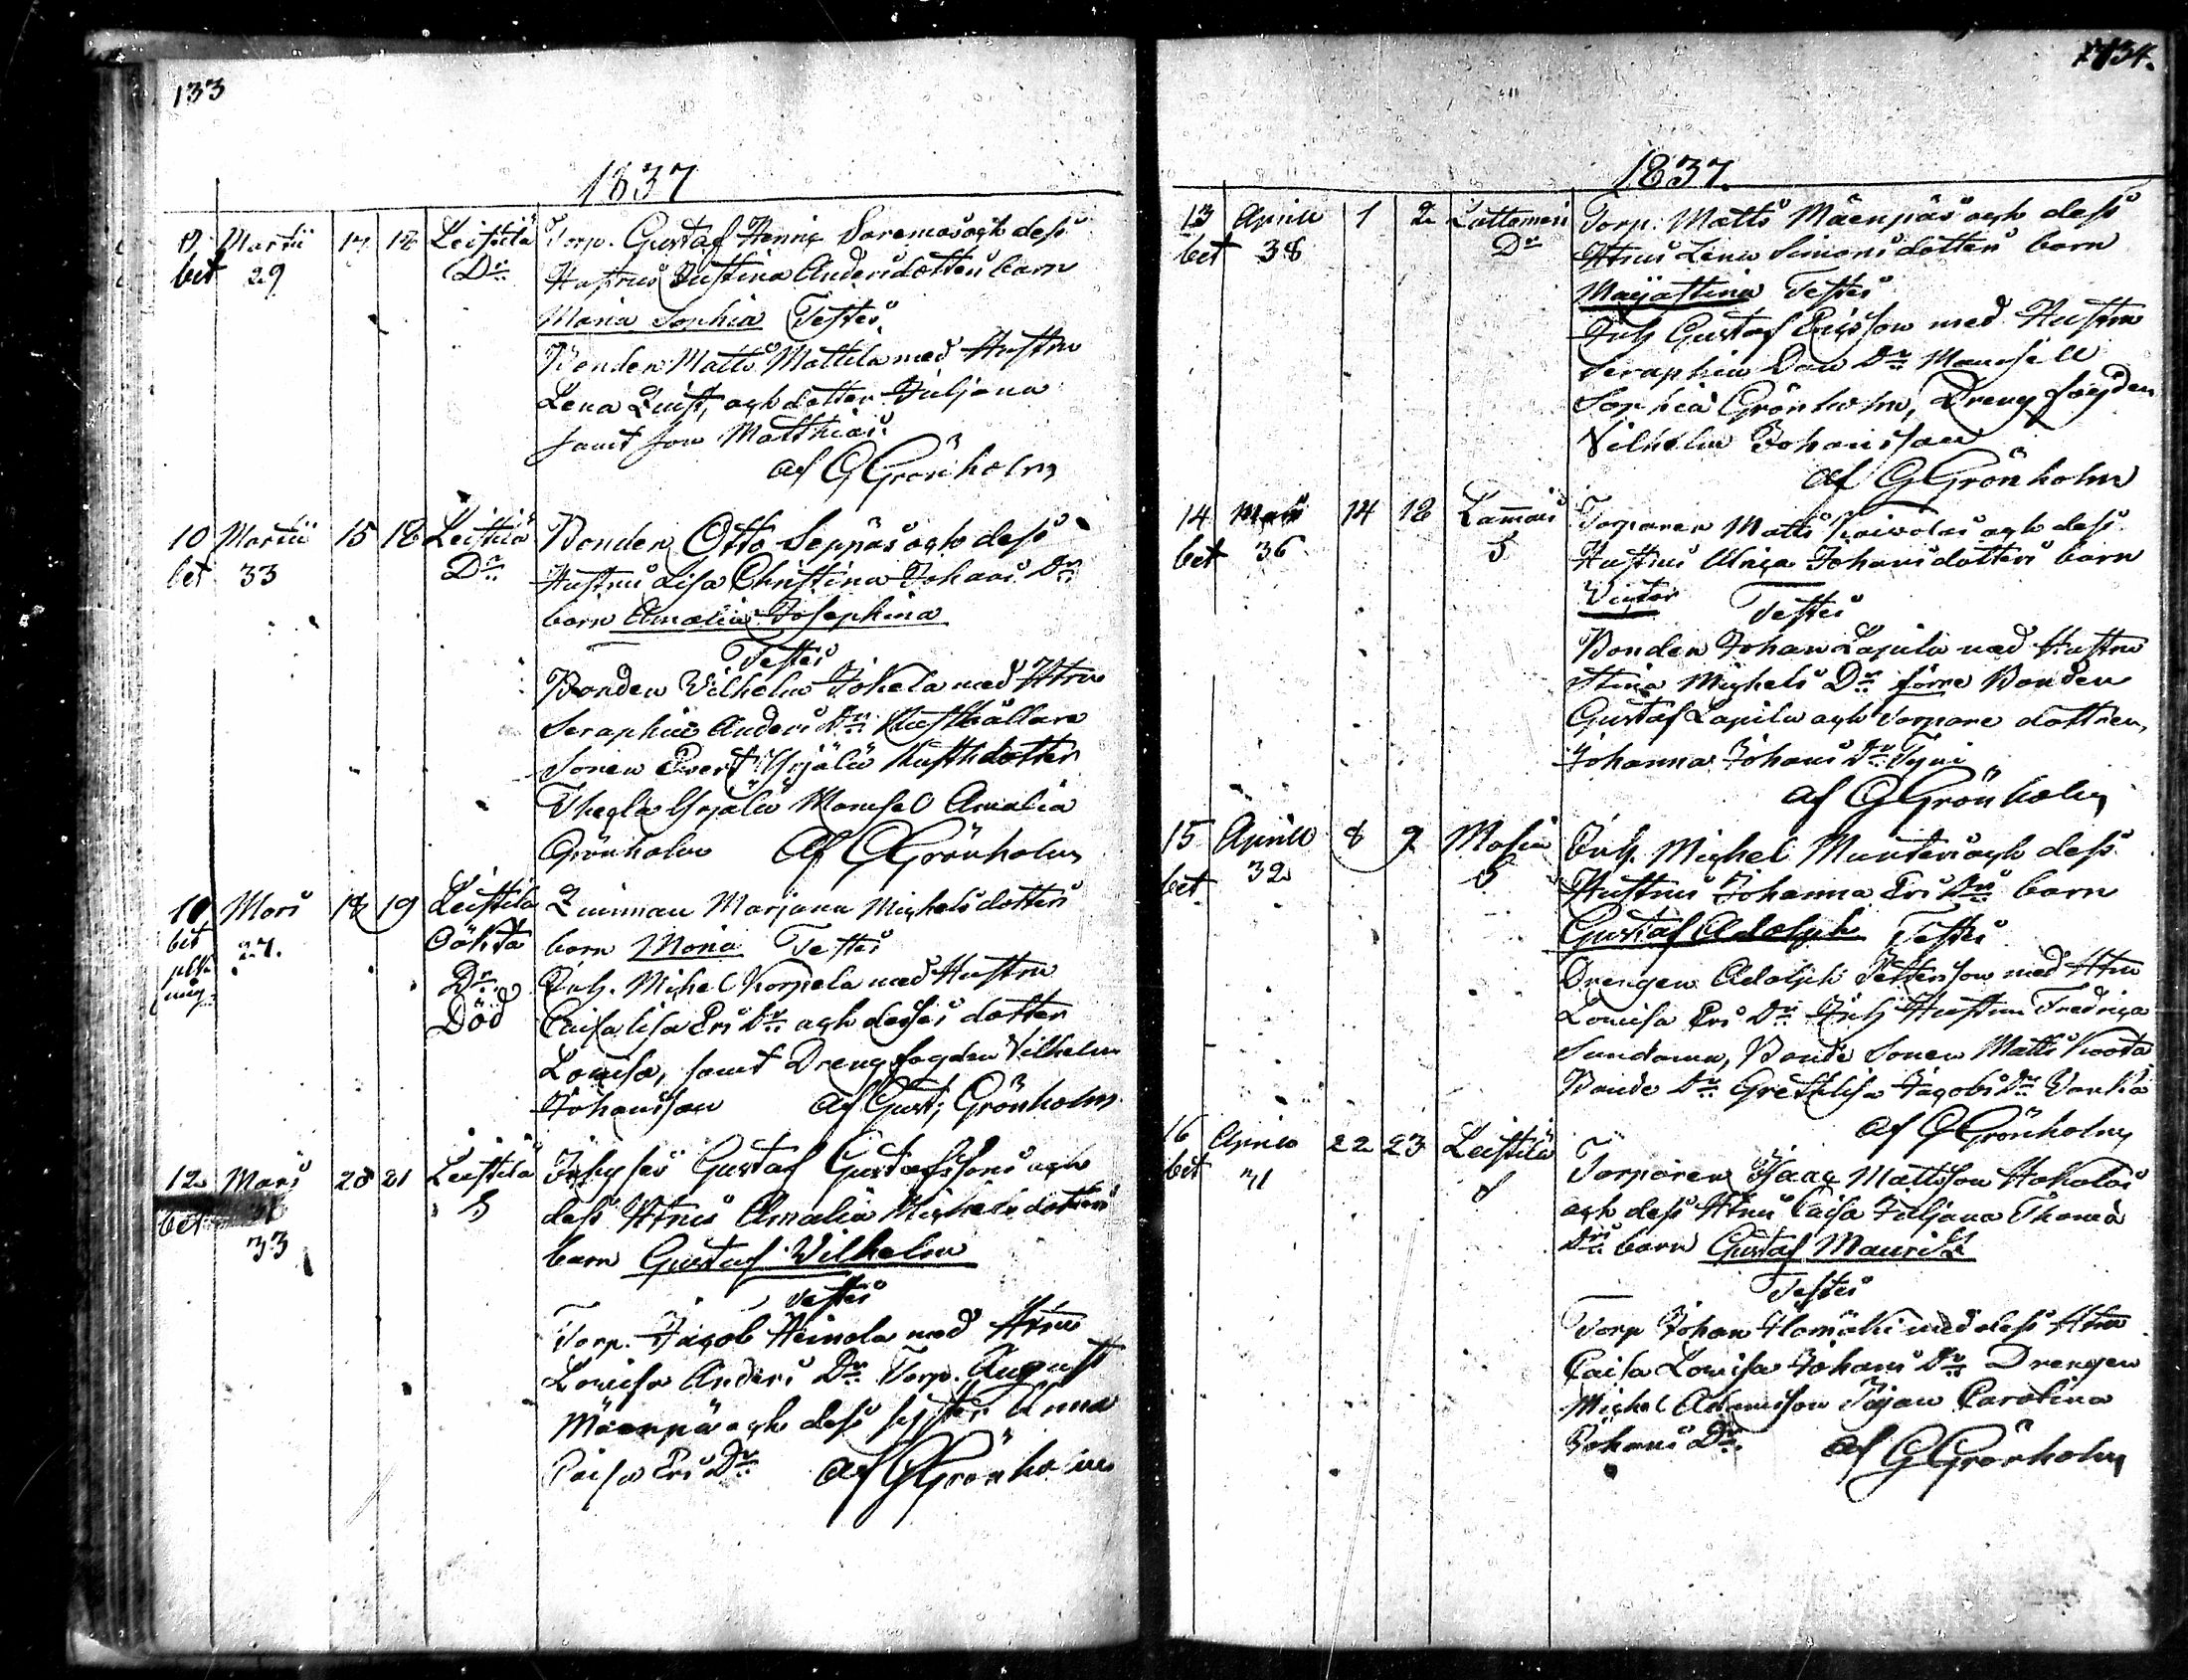 133
1837
9 Martii 17 18 Leistilä Torp. Gustaf Henric Saremas och dess
bet 29 Dr. Hustrus Justina Andersdotters barn
Maria Sophia Testes
Bonden Matts Mattila med Hustru
Lena och dotter Juljana
samt son Matthias.
af G Grönholm
10 Martii 15 18 Leistilä Bonden Otto Seppäs och dess
bet 33 Dr. Hustrus Lisa Christina Johans Dr.
barn Amalia Josephina
Testes
Bonden Vilhelm Jokela med Htru
Seraphia Anders Dr. Rusthållare
Sonen Evert Yrjälä Rusthdotter
Thecla Yrjälä Mamsel Amalia
Grönholm Af G Grönholm
11 Mars 18 19 Leistilä Qvinnan Marjana Michelsdotters
bet Dr. barn Maria Testes
27. Inh. Michel Korpela med Hustru
Död Caisa Lisa Ers Dr. och desses dotter
Lovisa, samt Drengfogden Vilhelm
Johansson af Gust; Grönholm
12 Mars 20 21 Leistilä Gustaf Gustafssons och
bet 33 S dess Htrus Amalia Michelsdotters
barn Gustaf Vilhelm
Testes
Torp. Jacob Heinola med Htru
Lovisa Anders Dr. Torp. August
Mäenpä och dess syster Anna
Caisa Ers Dr. af G Grönholm
134.
1837.
13 Aprill 1 2 Lattomeri Torp. Matts Mäenpäs och dess
bet 38 Dr. Htrus Lena Simonsdotters barn
Majastina Testes
Inh Gustaf Ericsson med Hustru
Seraphia Dan Dr. Mamsell
Sophia Grönholm, Drengfogden
Vilhelm Johansson
af G Grönholm
14 Mars 14 18 Lammais Torparen Matts Kaivolas och dess
bet 36 S Hustrus Ulrica Johansdotters barn
Victor Testes
Bonden Johan Lapila med Hustru
Stina Michels Dr. förre Bonden
Gustaf Lapila och Torpare dottren
Johanna Johans Dr. Tyni
af G Grönholm
15 Aprill 8 9 Masia Inh. Michel Munters och dess
bet 32 S Hustrus Johanna Ers Drs barn
Gustaf Adolph Testes
Drengen Adolph Pettersson med Htru
Lovisa Ers Dr. Inh Hustru Fredrica
Bonde Sonen Matts Knosta
Bonde Dr. Grethlisa Jacobs Dr. Vanha
af G Grönholm
16 Aprill 22 23 Leistilä Torparen Isaac Mattsson Hakolas
bet 41 S och dess Htrus Caisa Juljana Thoma
Drs barn Gustaf Mauritz
Testes
Torp Johan med dess Htru
Caisa Lovisa Johans Dr. Drengen
Michel Adamsson Pigan Carolina
Johans Dr. af G Grönholm